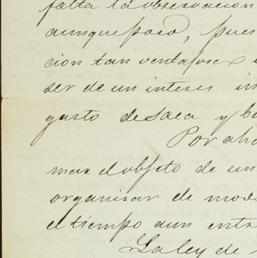 falta la observacion
aunque poco, pues
cion tan ventajosa
ser de un interes in
gusto de saca y
Por aho
mas el objeto de un
organisar de mod
el tiempo aun entr
La ley de